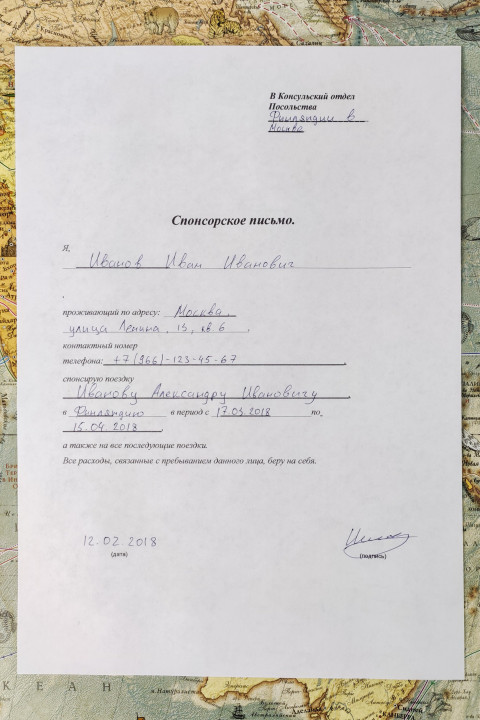 В Консульский отдел
Посольства
Финляндии в
Москва
Спонсорское письмо.
Я,
Иванов Иван Иванович
проживающий по адресу: Москва,
улица Ленина, 15, кв 6 .
контактный номер
телефона: +7(966)-123-45-67
спонсирую поездку
Иванову Александру Ивановичу
в Финляндию в период с 17.03.2018 по
15.04.2018 .
а также на все последующие поездки.
Все расходы, связанные с пребыванием данного лица, беру на себя.
12.02 2018
(дата) (подпись)
КЕАН